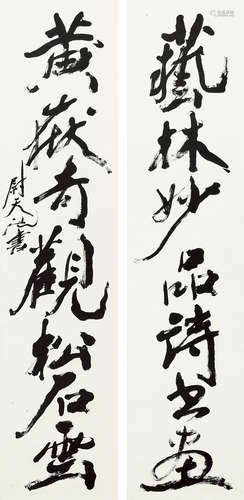 藝林妙品詩書畫
黃嶽奇觀松石雲
尉天池書